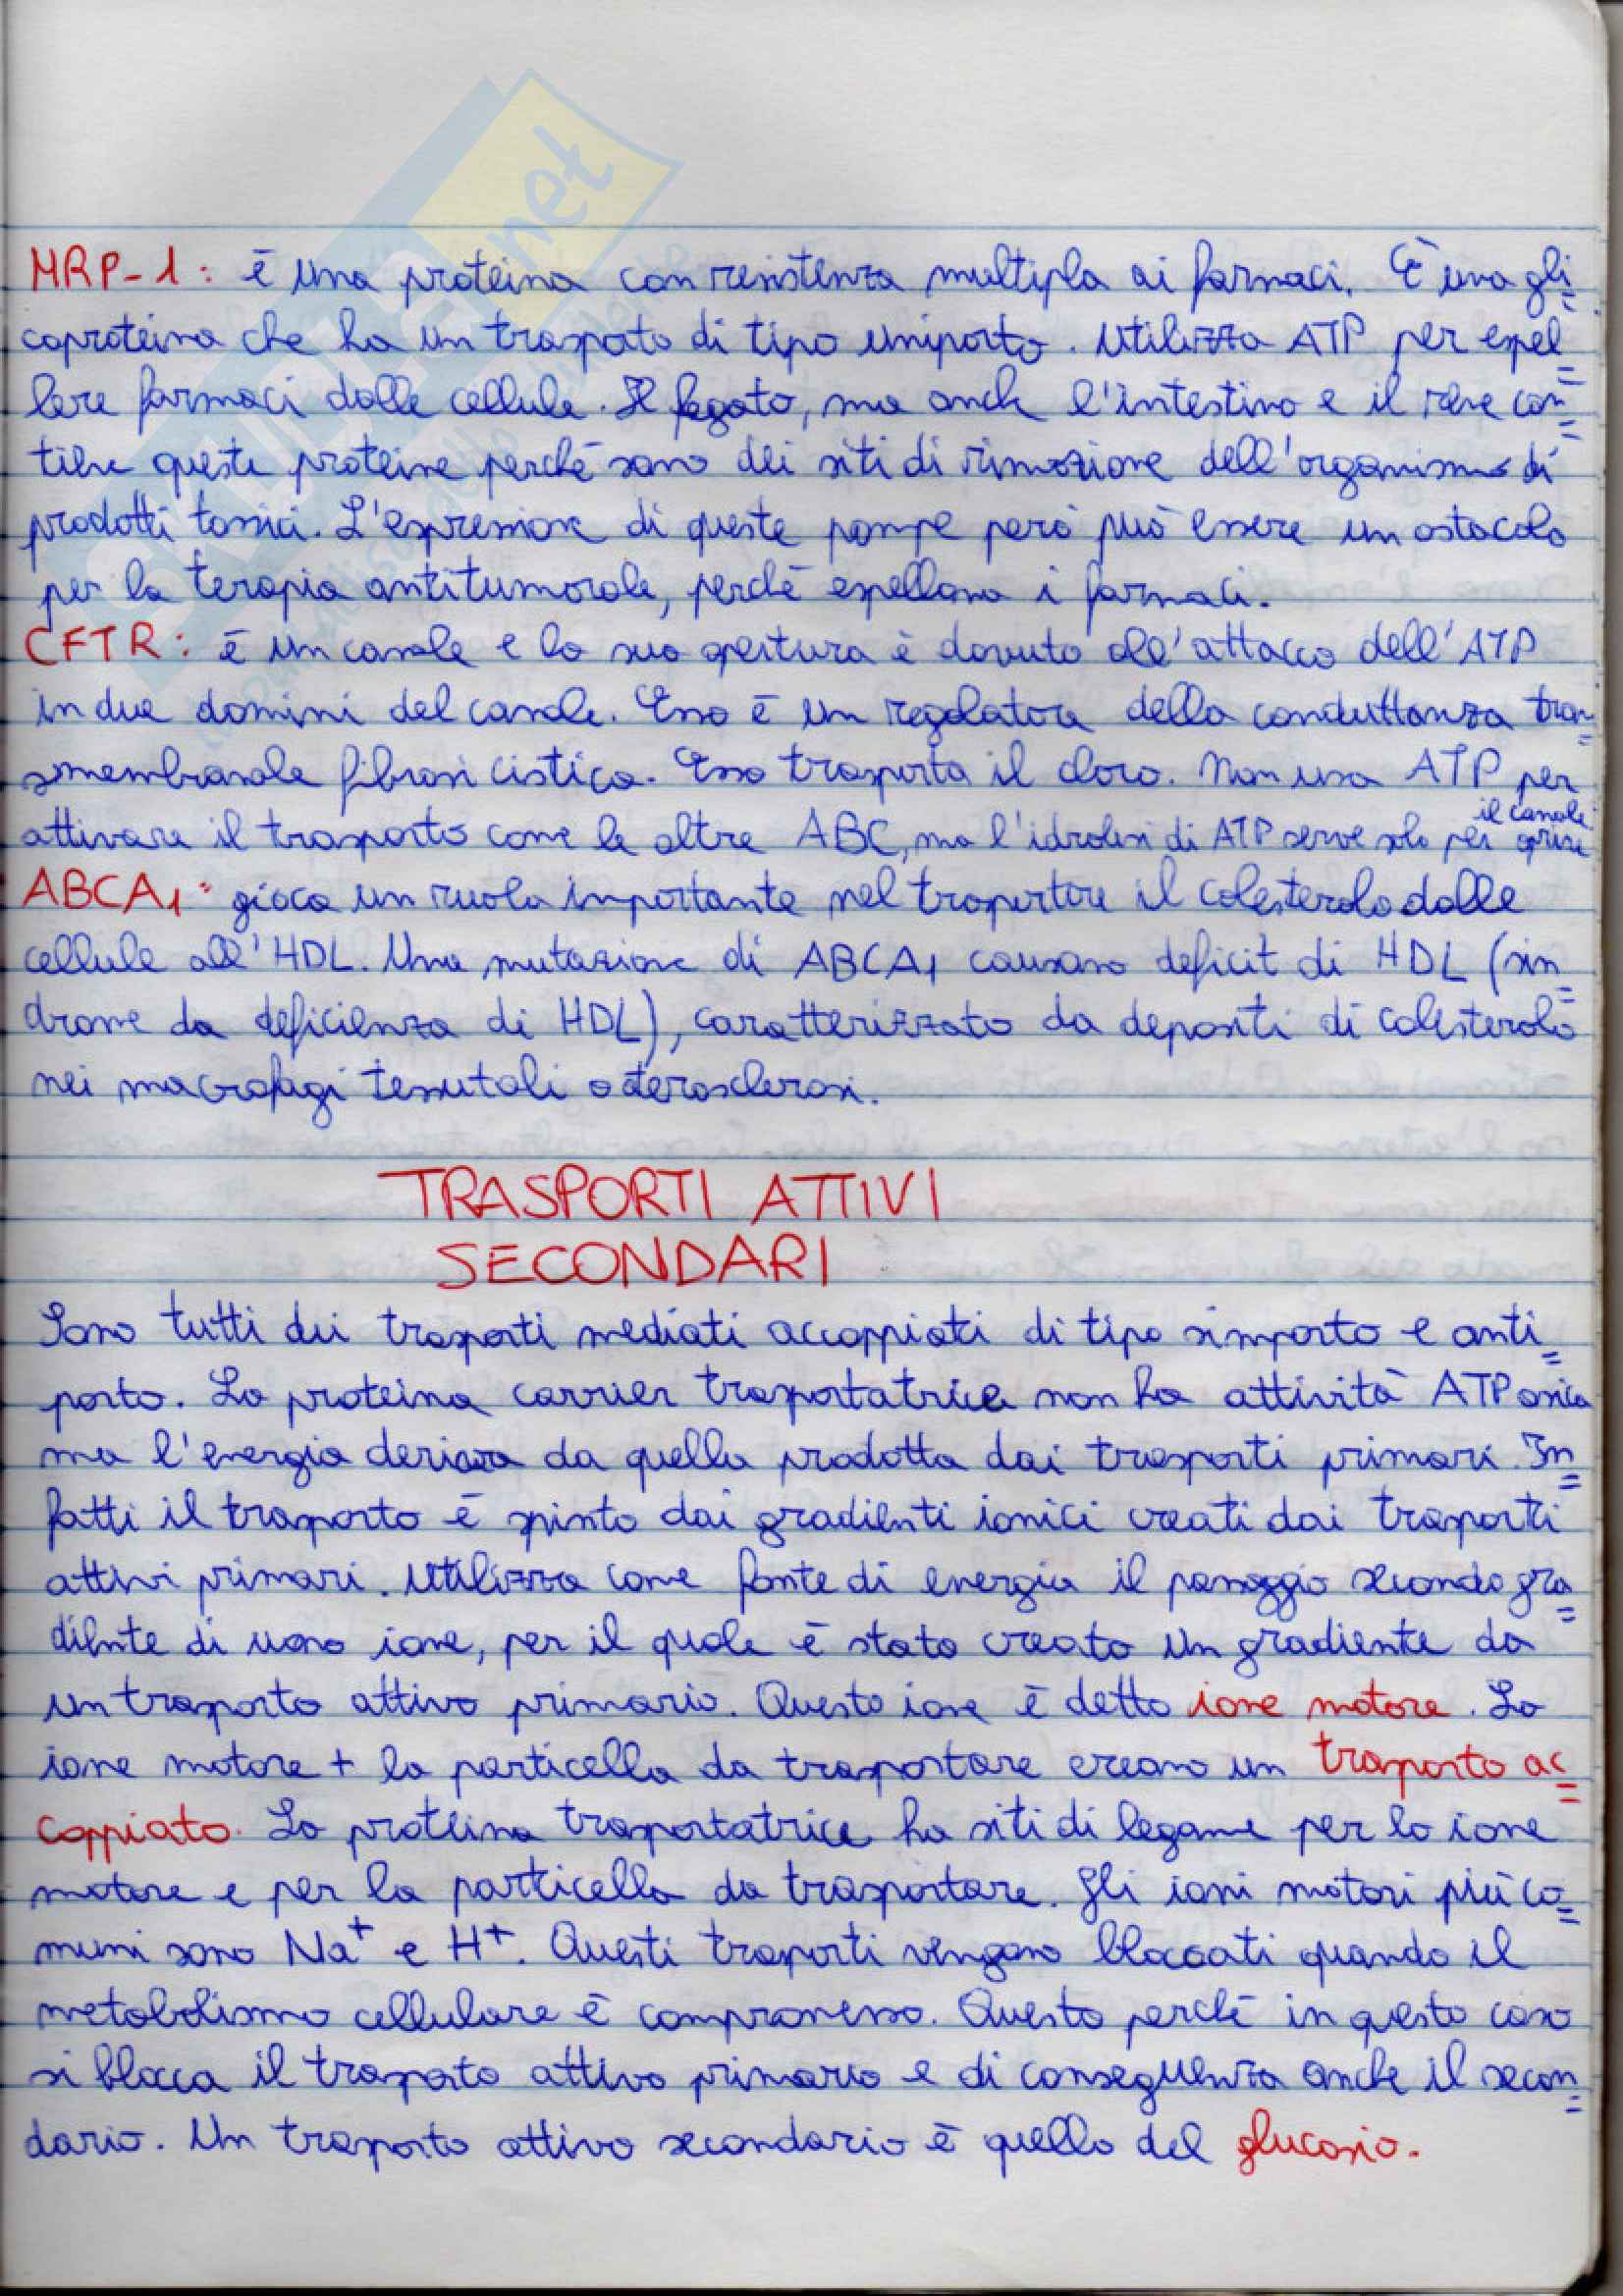 MRP-1: è una proteina con resistenza multipla ai farmaci. È una gli=
coproteina che ha un trasporto di tipo uniporto. Utilizza ATP per espel=
lere farmaci dalle cellule. Il fegato, ma anche l'intestino e il rene con=
tiene queste proteine perchè sono dei siti di rimozione dell'organismo di
prodotti tossici. L'espressione di queste pompe però può essere un ostacolo
per la terapia antitumorale, perchè espellono i farmaci.
CFTR: è un canale e la sua apertura è dovuto all'attacco dell'ATP
in due domini del canale. Esso è un regolatore della conduttanza tran=
smembranale fibrosi cistica. Esso trasporta il cloro. Non usa ATP per
attivare il trasporto come le altre ABC, ma l'idrolisi di ATP serve solo per aprire il canale
ABCA1: gioca un ruolo importante nel trasportare il colesterolo dalle
cellule all'HDL. Una mutazione di ABCA1 causano deficit di HDL (sin=
drome da deficienza di HDL), caratterizzato da depositi di colesterolo
nei macrofagi tessutali e aterosclerosi.
TRASPORTI ATTIVI
SECONDARI
Sono tutti dei trasporti mediati accoppiati di tipo simporto e anti=
porto. La proteina carrier trasportatrice non ha attività ATPasica
ma l'energia deriva da quella prodotta dai trasporti primari. In=
fatti il trasporto è spinto dai gradienti ionici creati dai trasporti
attivi primari. Utilizza come fonte di energia il passaggio secondo gra=
diente di uno ione, per il quale è stato creato un gradiente da
un trasporto attivo primario. Questo ione è detto ione motore. Lo
ione motore + la particella da trasportare creano un trasporto ac=
coppiato. La proteina trasportatrice ha siti di legame per lo ione
motore e per la particella da trasportare. Gli ioni motori più co=
muni sono Na⁺ e H⁺. Questi trasporti vengono bloccati quando il
metabolismo cellulare è compromesso. Questo perchè in questo caso
si blocca il trasporto attivo primario e di conseguenza anche il secon=
dario. Un trasporto attivo secondario è quello del glucosio.